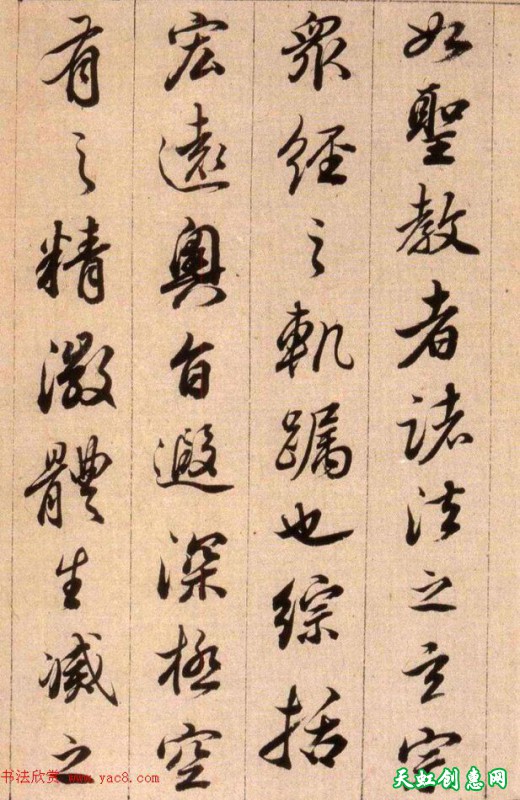 如聖教者諸法之玄宗
衆經之軌躅也綜括
宏遠奧旨遐深極空
有之精微體生滅之
书法欣赏 www.yac8.com
天虹创意网